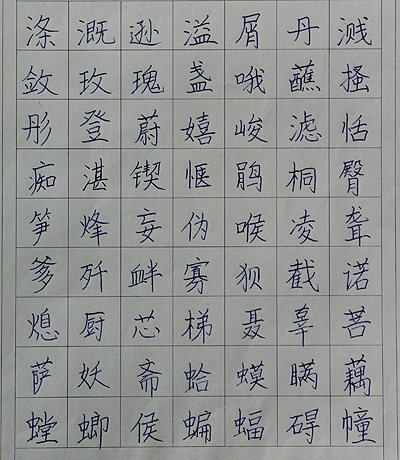 涤溉逊溢屑丹溅
敛玫瑰盏哦蘸搔
彤登蔚嬉峻滤恬
痴湛锲惬鹃桐臀
笋烽妄伪喉凌耸
爹歼衅寡狈截诺
熄厨芯梯聂辜菩
萨妖斋蛤蟆瞒藕
螳螂侯蝙蝠碍幢